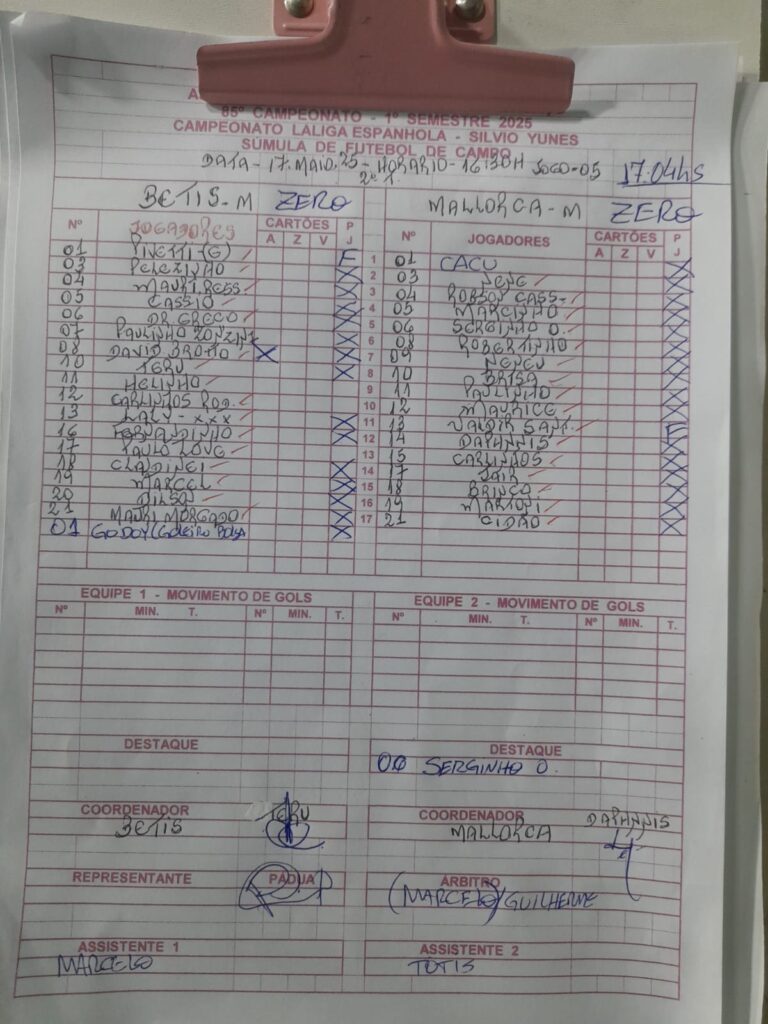 85º CAMPEONATO - 1º SEMESTRE 2025
CAMPEONATO LALIGA ESPANHOLA - SILVIO YUNES
SÚMULA DE FUTEBOL DE CAMPO
DATA - 17.MAIO.25 - HORARIO - 16:30H JOGO-05 17:04hs
2º T.
BETIS-M ZERO MALLORCA-M ZERO
Nº JOGADORES CARTÕES A Z V P J
01 PIVETTI (G) F
03 PELEZINHO X
04 MAURI.RESS. X
05 CASSIO X
06 DR GRECO X
07 PAULINHO ZONZINI X
08 DAVID BROTTO X X
10 TERU X
11 HELINHO
12 CARLINHOS ROD.
13 LALY - XXX X
16 FERNANDINHO X
17 PAULO LOVE
18 CLAUDINEI X
19 MARCEL X
20 DILSON X
21 MAURI MORGADO X
01 GODOY (GOLEIRO BOLSA X
Nº JOGADORES CARTÕES A Z V P J
1 01 CACU X
2 03 NENE X
3 04 ROBSON CASS- X
4 05 MARCINHO X
5 06 SERGINHO O. X
6 08 ROBERTINHO X
7 09 NENEU X
8 10 BRISA X
9 11 PAULINHO X
10 12 MAURICE X
11 13 VALDIR SANT. F
12 14 DAPHNNIS X
13 15 CARLINHOS X
14 17 JAIR X
15 18 BRINCO X
16 19 MARTONI X
17 21 CIDÃO X
EQUIPE 1 - MOVIMENTO DE GOLS EQUIPE 2 - MOVIMENTO DE GOLS
Nº MIN. T. Nº MIN. T. Nº MIN. T. Nº MIN. T.
DESTAQUE DESTAQUE
SERGINHO O.
COORDENADOR TERU COORDENADOR DAPHNNIS
BETIS MALLORCA
REPRESENTANTE PADUA ARBITRO
(MARCELO) GUILHERME
ASSISTENTE 1 ASSISTENTE 2
MARCELO TOTIS